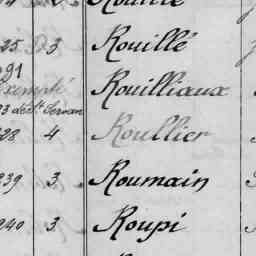 25 3 Rouillé
91
exempté Rouilliaux
23 déc St Servan
28 4 Roullier
239 3 Roumain
240 3 Roupi